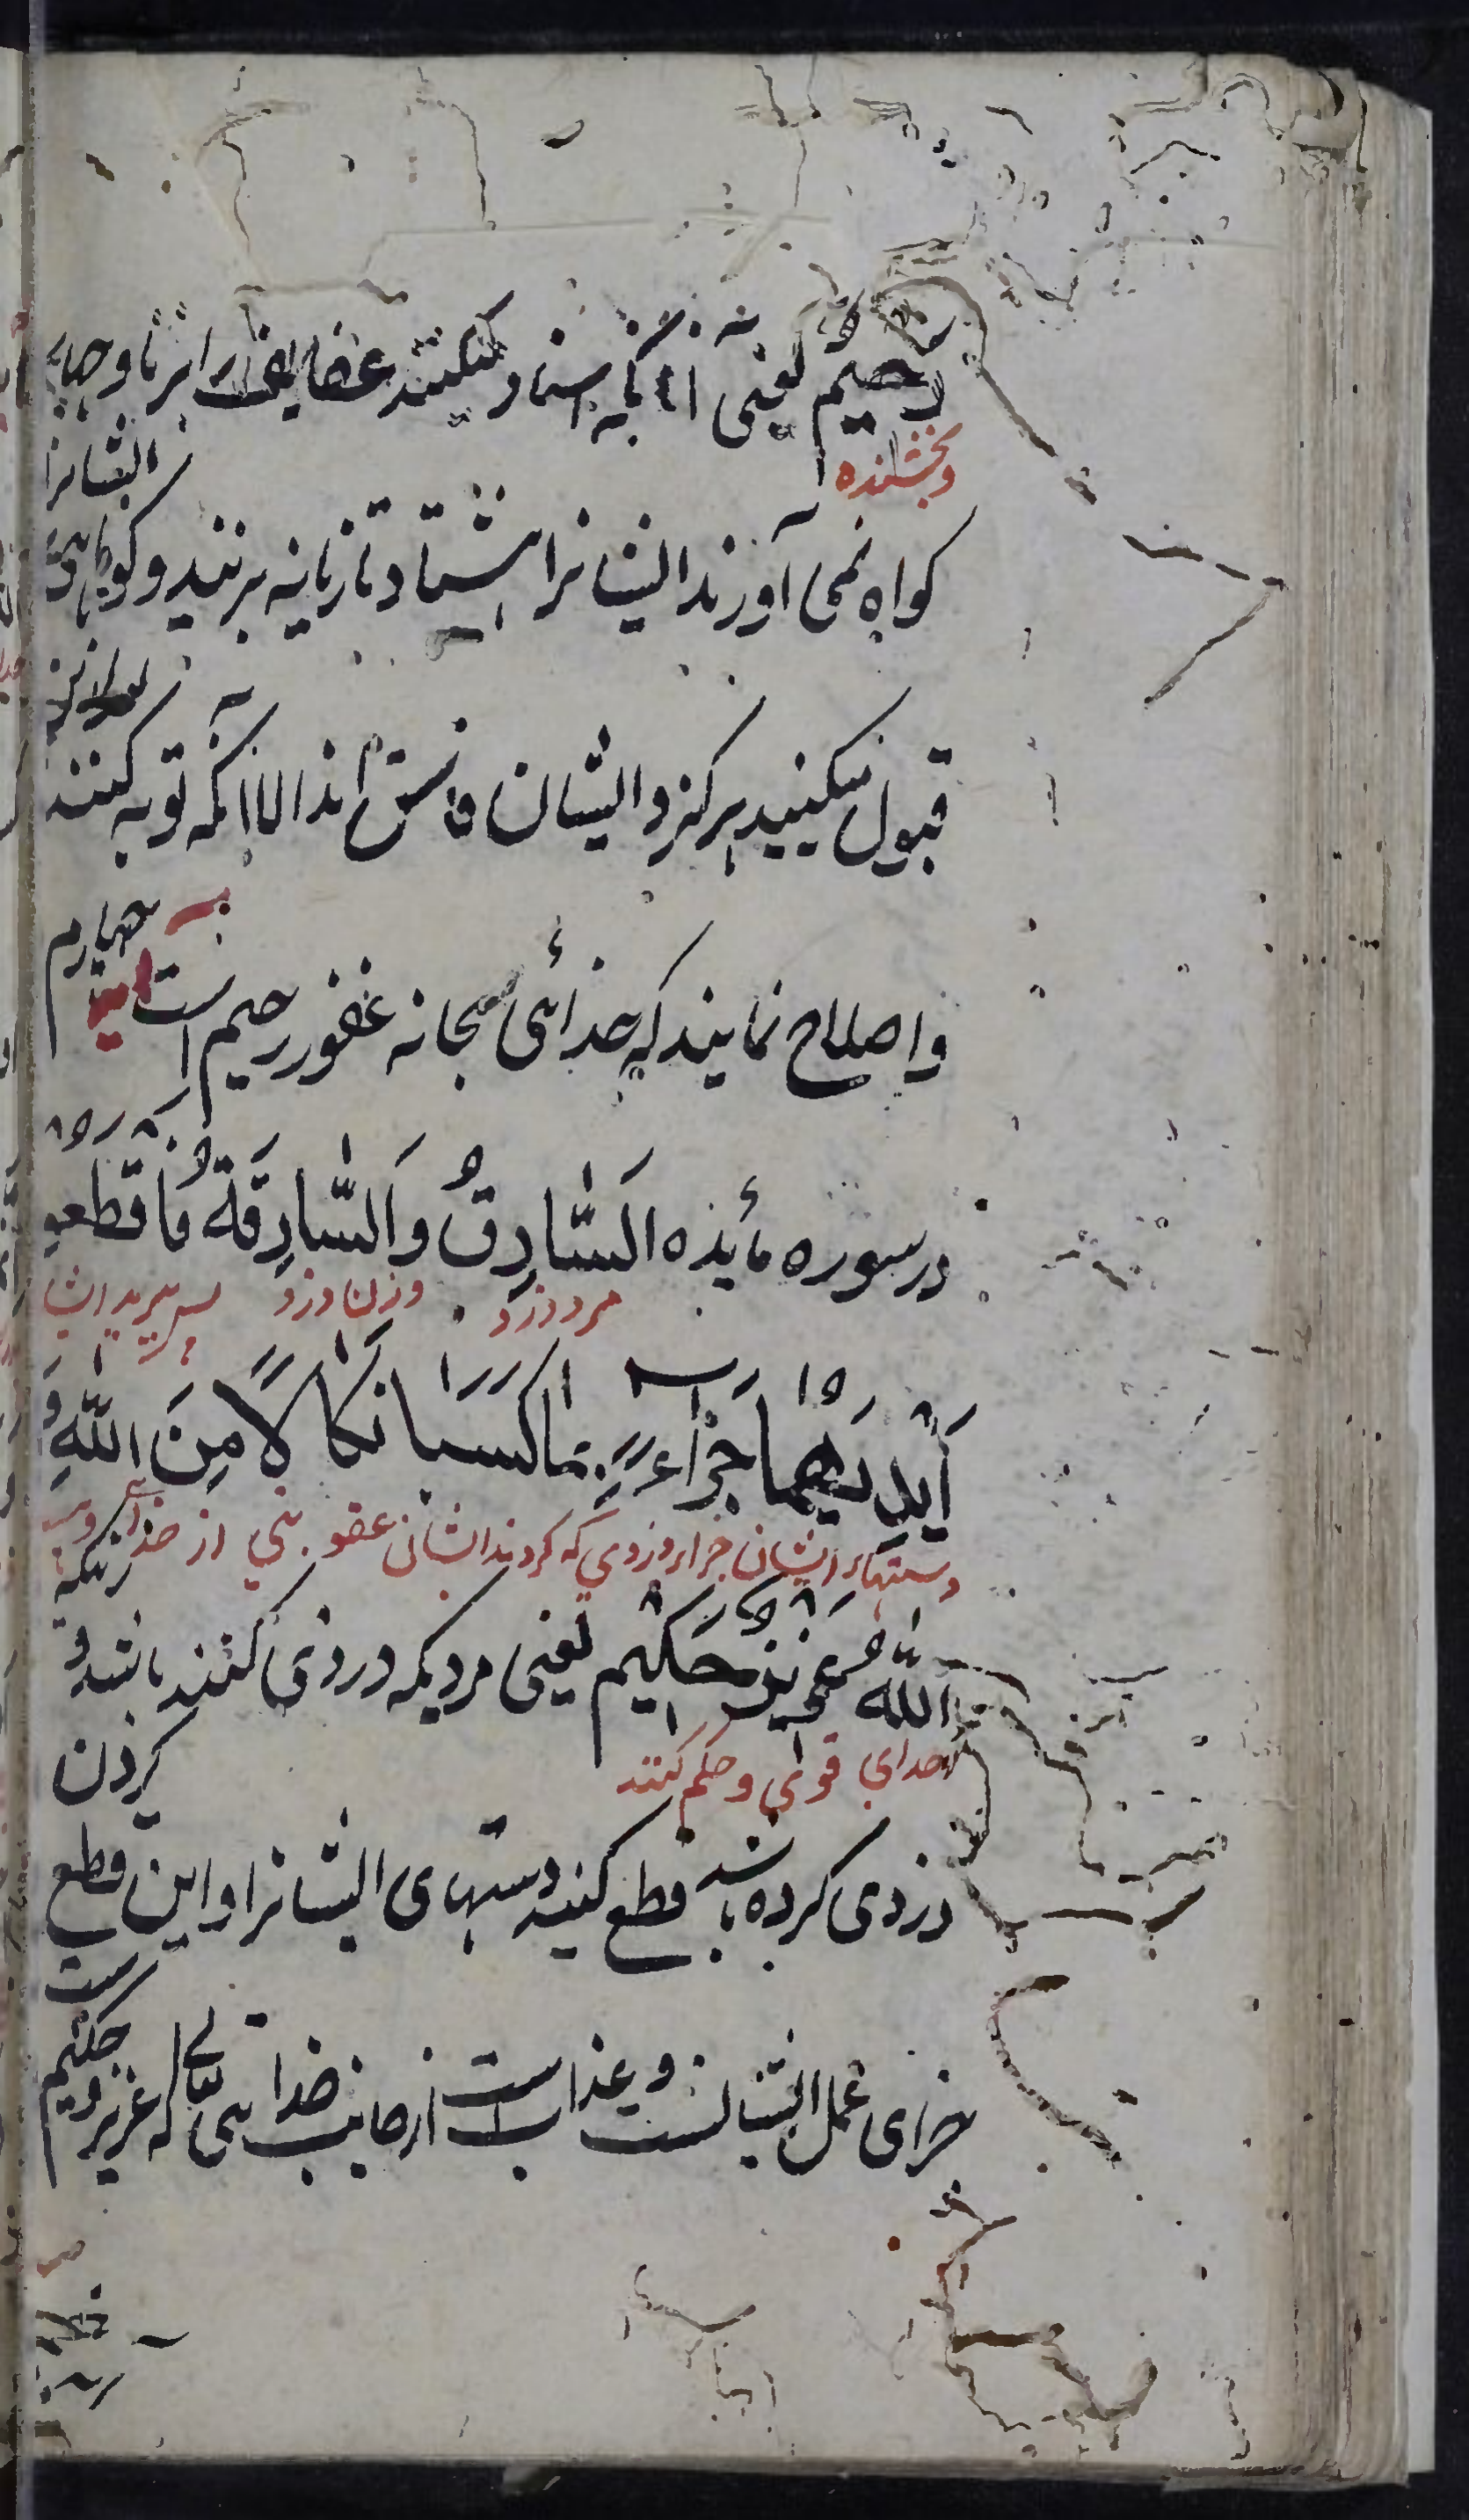 رحیم یعنی آنانکه اسناد میکنند عفایف را بزنا و چهار
وبخشنده
کواه نمی آورند ایشانرا هشتاد تازیانه بزنید و کواهی ایشانرا
قبول نکنید هرکز و ایشان فاسق اند الا آنکه توبه کنند بعد ازین
و اصلاح نمایند که خدائی سبحانه غفور رحیم است آیت چهارم
در سوره مائده اَلسَّارِقُ وَالسَّارِقَةُ فَاقْطَعُو
مرد دزد وزن دزد پس ببرید ایشا
اَیْدِیَهُمَا جَزَاءً بِمَا كَسَبَا نَكَالًا مِنَ اللّٰهِ وَ
دستهاء ایشان جزاء دزدی که کردند ایشان عقوبتی از خدا و
اللّٰهُ عَزِیزٌ حَكِیْم یعنی مردیکه دزدی کنند باشد و زنیکه
خدای قوی و حکم کنند
دزدی کرده باشد قطع کنید دستهای ایشانرا و این قطع کردن
جزای عمل ایشانست و عذابست از جانب خدا تعالی که عزیز و حکیم است